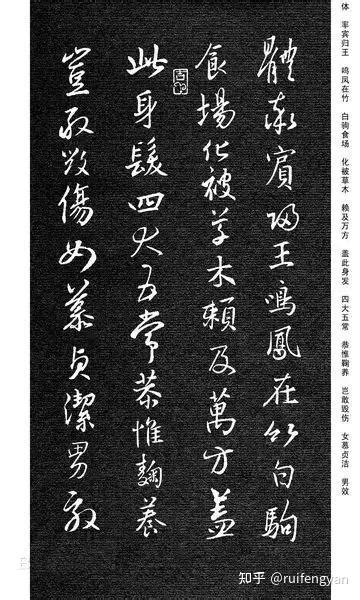 體率賓歸王鳴鳳在竹白駒
食場化被草木賴及萬方蓋
此身髮四大五常恭惟鞠養
豈敢毀傷女慕貞潔男效
体 率宾归王 鸣凤在竹 白驹食场 化被草木 赖及万方 盖此身发 四大五常 恭惟鞠养 岂敢毁伤 女慕贞洁 男效
知乎 @ruifengyan